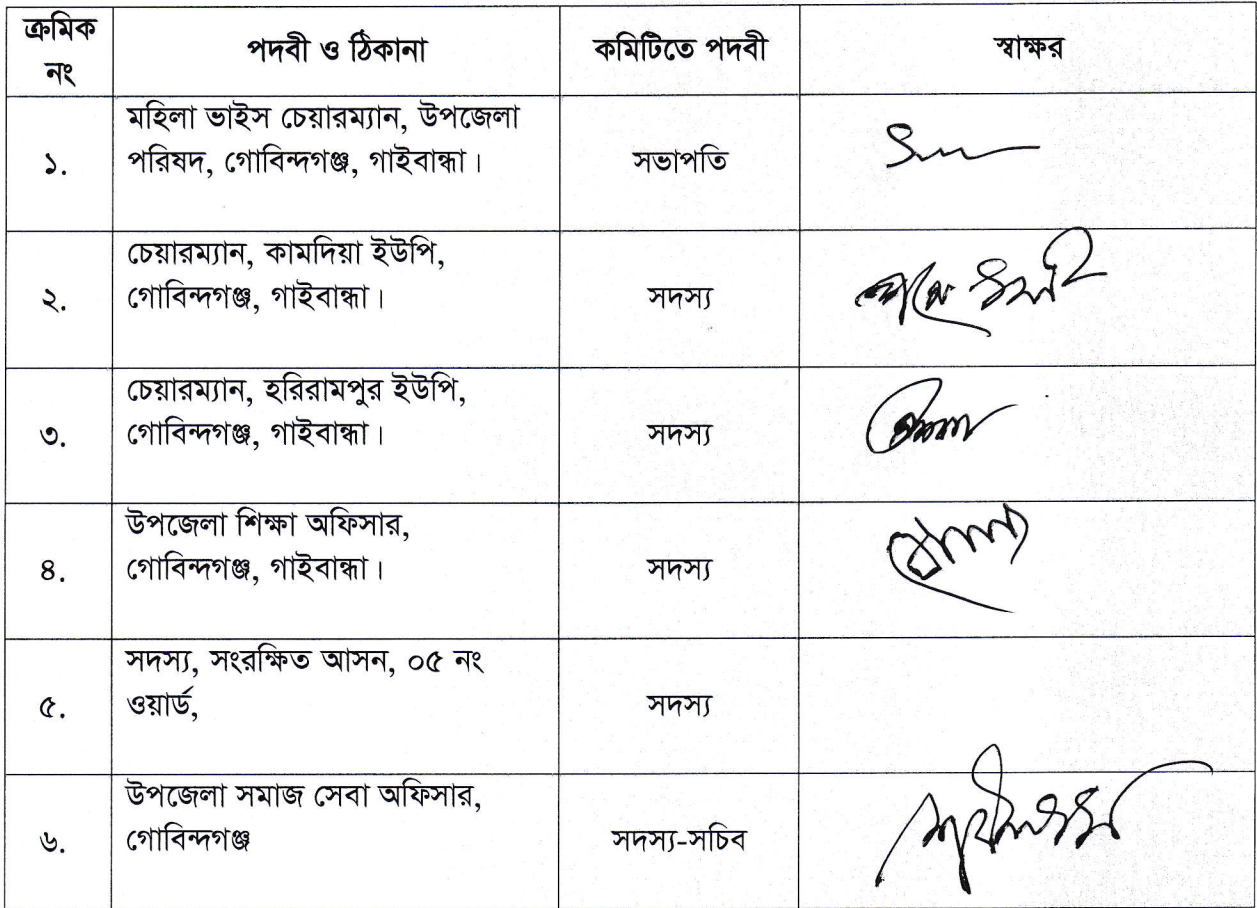 ক্রমিক
নং
পদবী ও ঠিকানা
কমিটিতে পদবী
স্বাক্ষর
মহিলা ভাইস চেয়ারম্যান, উপজেলা
১.
পরিষদ, গোবিন্দগঞ্জ, গাইবান্ধা।
সভাপতি
চেয়ারম্যান, কামদিয়া ইউপি,
২.
গোবিন্দগঞ্জ, গাইবান্ধা।
সদস্য
চেয়ারম্যান, হরিরামপুর ইউপি,
৩.
গোবিন্দগঞ্জ, গাইবান্ধা।
সদস্য
উপজেলা শিক্ষা অফিসার,
৪.
গোবিন্দগঞ্জ, গাইবান্ধা।
সদস্য
সদস্য, সংরক্ষিত আসন, ০৫ নং
৫.
ওয়ার্ড,
সদস্য
উপজেলা সমাজ সেবা অফিসার,
৬.
গোবিন্দগঞ্জ
সদস্য-সচিব